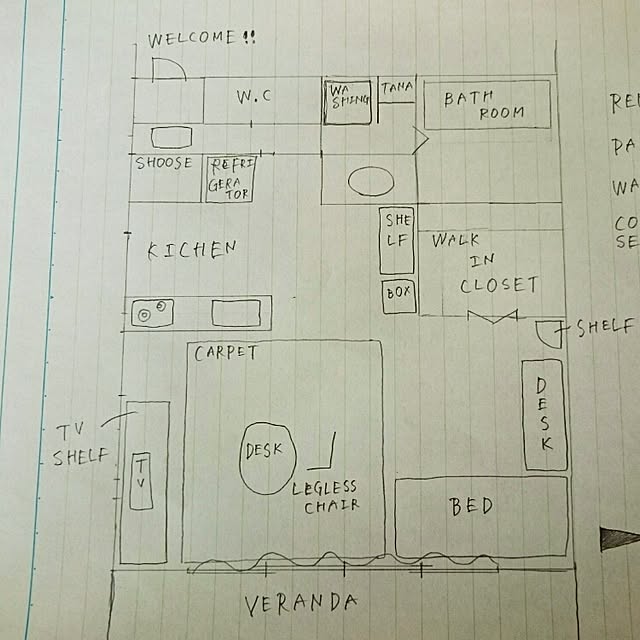 WELCOME!!
W.C
WA
SHING
TANA
BATH
ROOM
SHOOSE
REFRI
GERA
TOR
SHE
LF
WALK
IN
CLOSET
KITCHEN
BOX
SHELF
CARPET
DESK
TV
SHELF
TV
DESK
LEGLESS
CHAIR
BED
VERANDA
PA
WA
CO
SE